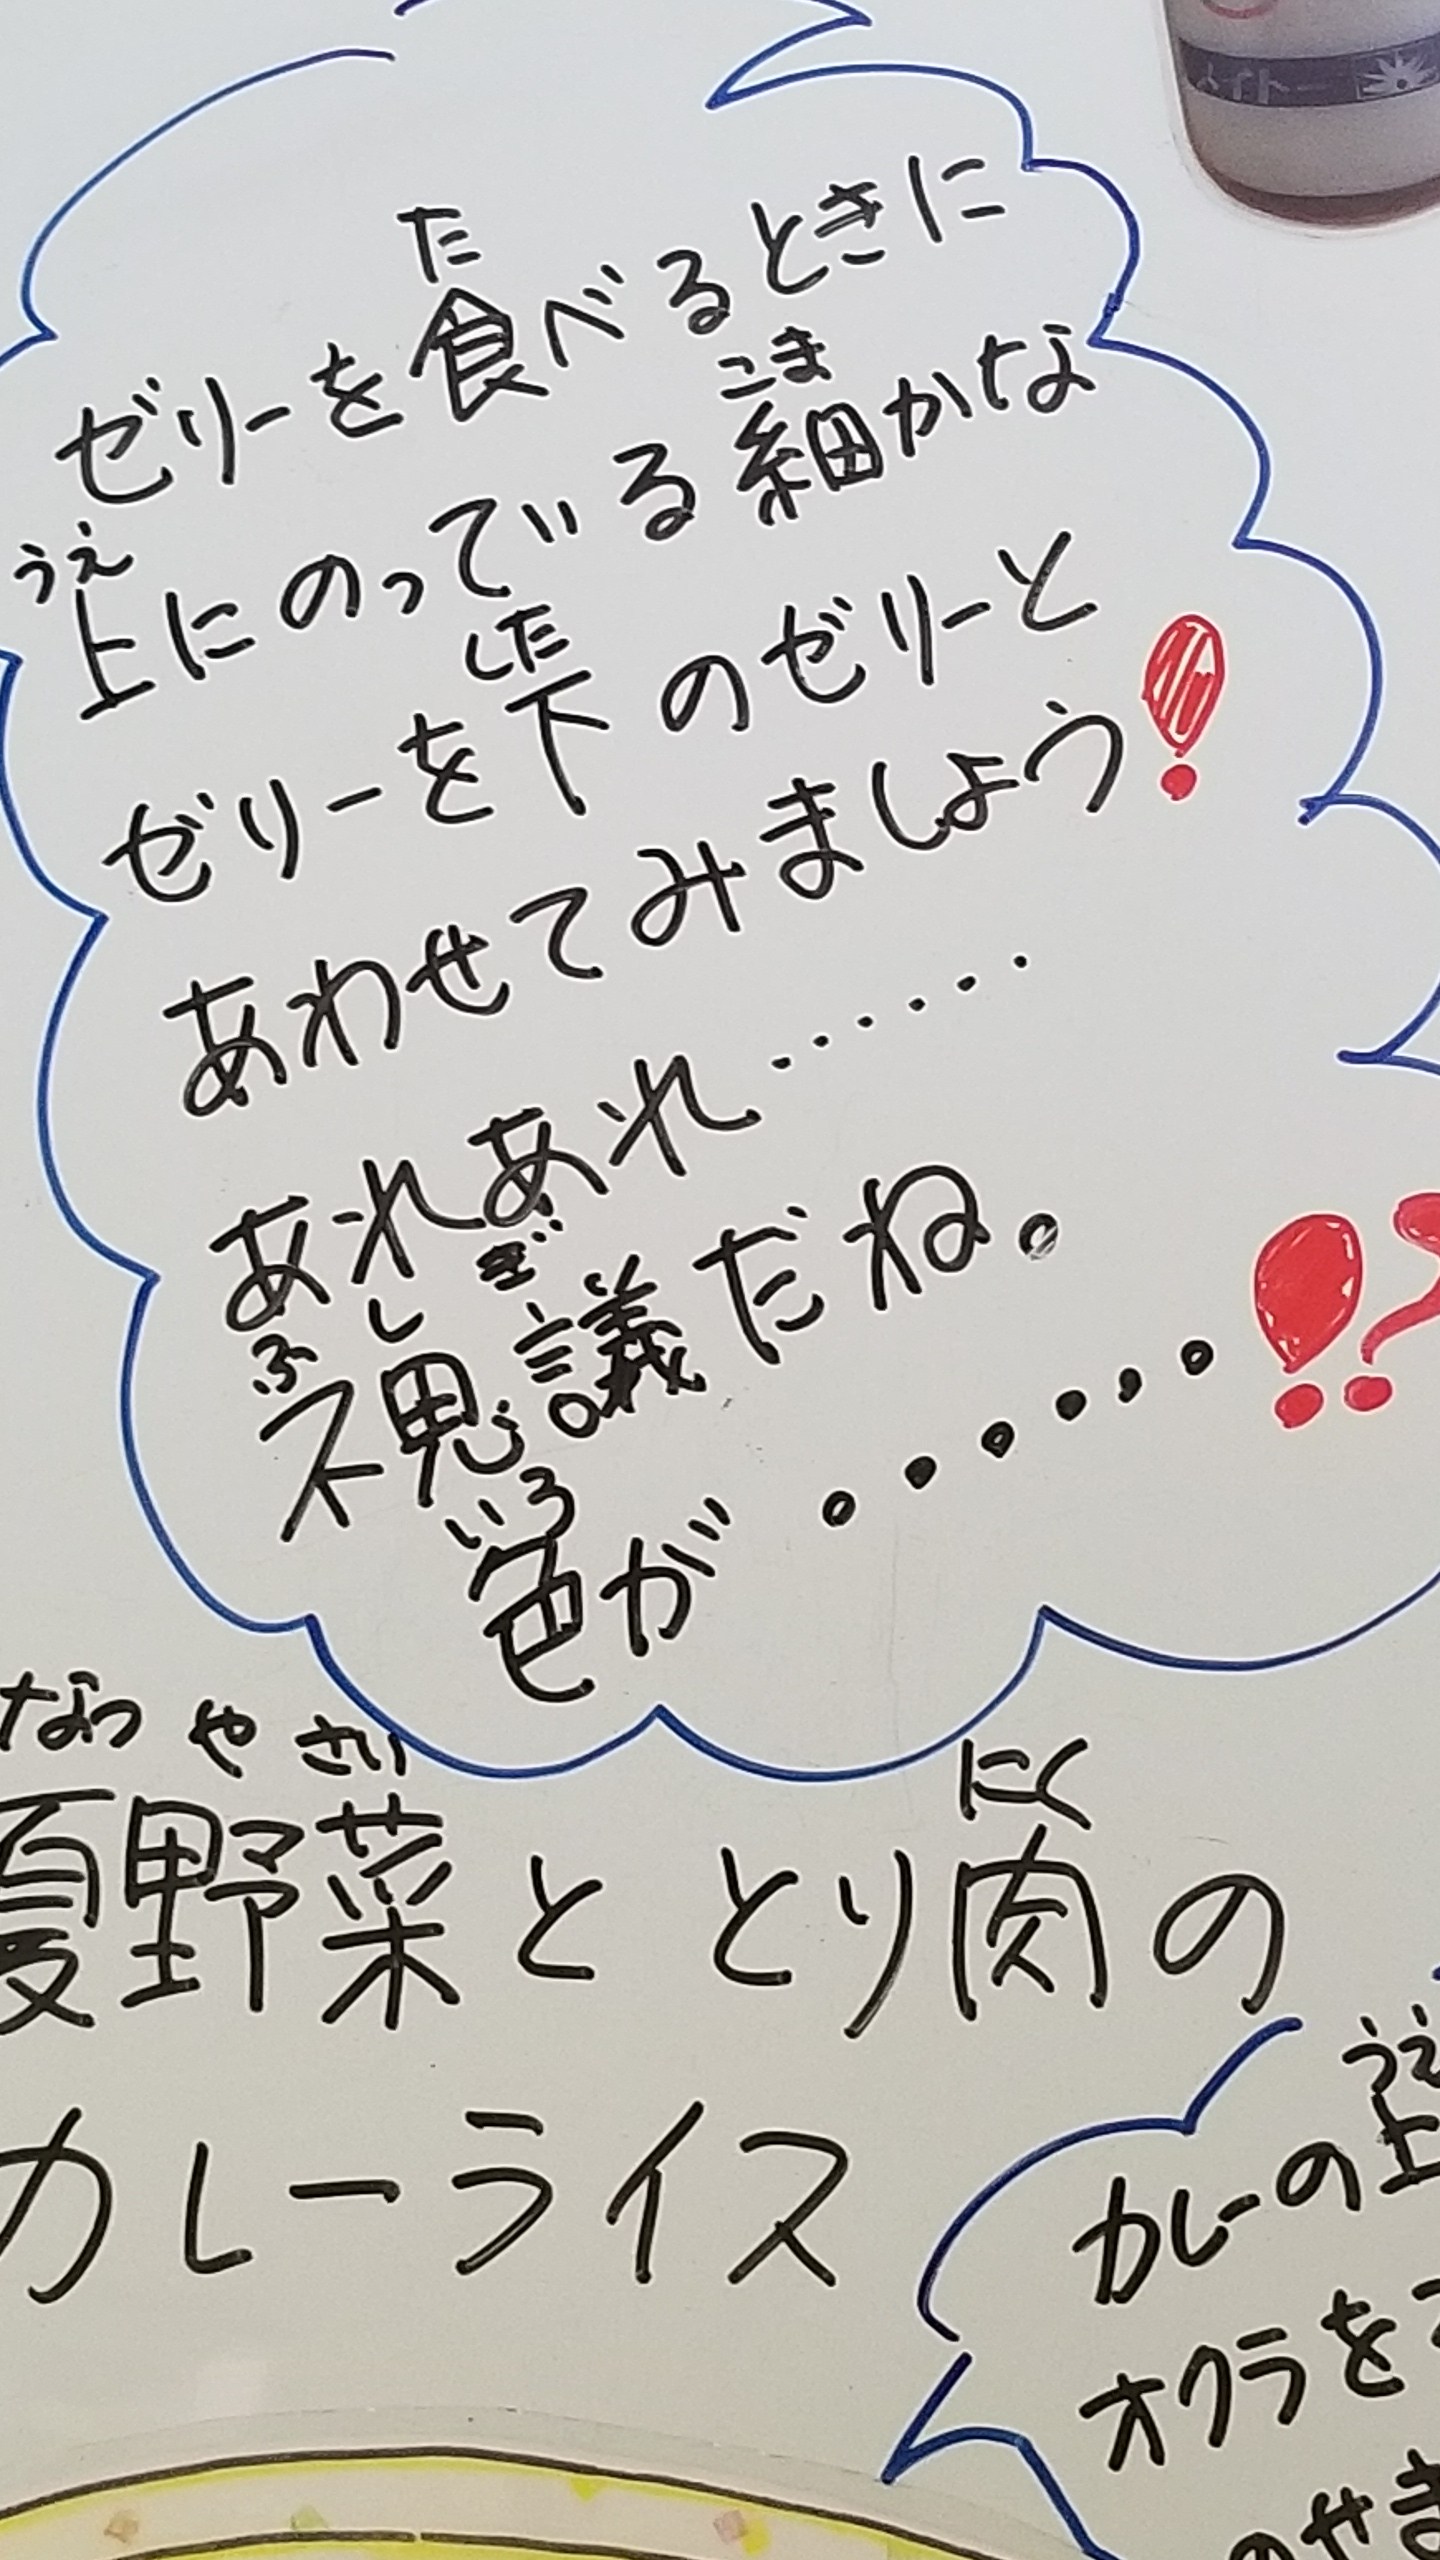 メイトー
ゼリーを食べるときに
上にのっている細かな
ゼリーを下のゼリーと
あわせてみましょう!
あれあれ‥‥‥
不思議だね。
色が・・・・・・!?
夏野菜ととり肉の
カレーライス
カレーの上
オクラを
のせま